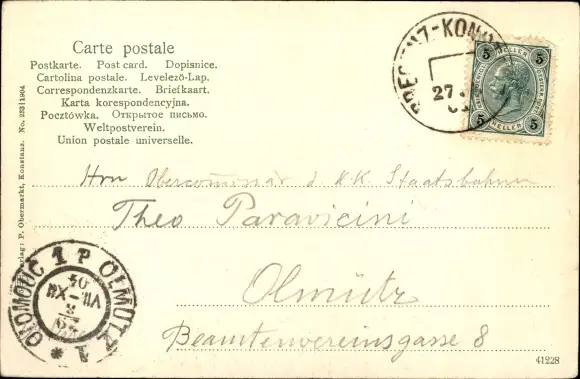 Carte postale
Postkarte. Post card. Dopisnice.
Cartolina postale. Levelező-Lap.
Correspondenzkarte. Briefkaart.
Karta korespondencyjna.
Pocztówka. Открытое письмо.
Weltpostverein.
Union postale universelle.
Verlag: P. Obermarkt, Konstanz. No. 2331 1904
5 HELLER 5
5 HELLER 5
27
Hrn Obercommissär d KK Staatsbahnen
Theo Paravicini
Olmütz
Beamtenvereinsgasse 8
OLOMOUC 1 P OLMÜTZ 1
41228